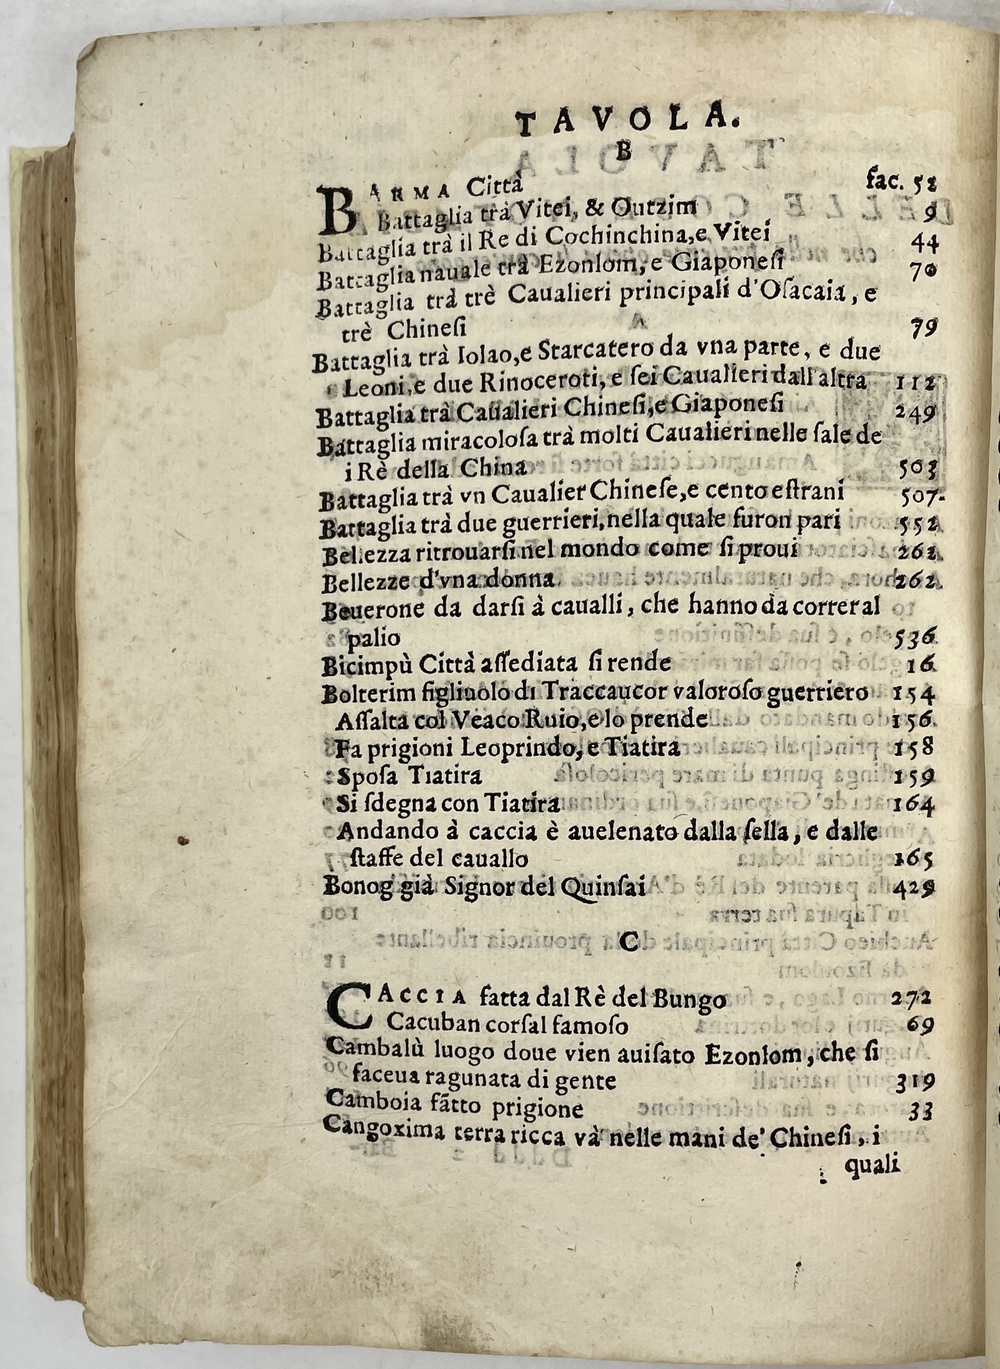 TAVOLA.
B
BARMA Città fac. 52
Battaglia trà Vitei, & Outzim 9
Battaglia trà il Re di Cochinchina, e Vitei 44
Battaglia nauale trà Ezonlom, e Giaponesi 70
Battaglia trà trè Caualieri principali d'Osacaia, e
trè Chinesi 79
Battaglia trà Iolao, e Starcatero da vna parte, e due
Leoni, e due Rinoceroti, e sei Caualieri dall'altra 112
Battaglia trà Caualieri Chinesi, e Giaponesi 249
Battaglia miracolosa trà molti Caualieri nelle sale de
i Rè della China 503
Battaglia trà vn Caualier Chinese, e cento estrani 507
Battaglia trà due guerrieri, nella quale furon pari 552
Bellezza ritrouarsi nel mondo come si proui 262
Bellezze d'vna donna 262
Beuerone da darsi à caualli, che hanno da correr al
palio 536
Bicimpù Città assediata si rende 16
Bolterim figliuolo di Traccaucor valoroso guerriero 154
Assalta col Veaco Ruio, e lo prende 156
Fa prigioni Leoprindo, e Tiatira 158
Sposa Tiatira 159
Si sdegna con Tiatira 164
Andando à caccia è auelenato dalla sella, e dalle
staffe del cauallo 165
Bonog già Signor del Quinsai 429
C
CACCIA fatta dal Rè del Bungo 272
Cacuban corsal famoso 69
Cambalù luogo doue vien auisato Ezonlom, che si
faceua ragunata di gente 319
Camboia fatto prigione 33
Cangoxima terra ricca và nelle mani de' Chinesi, i
quali